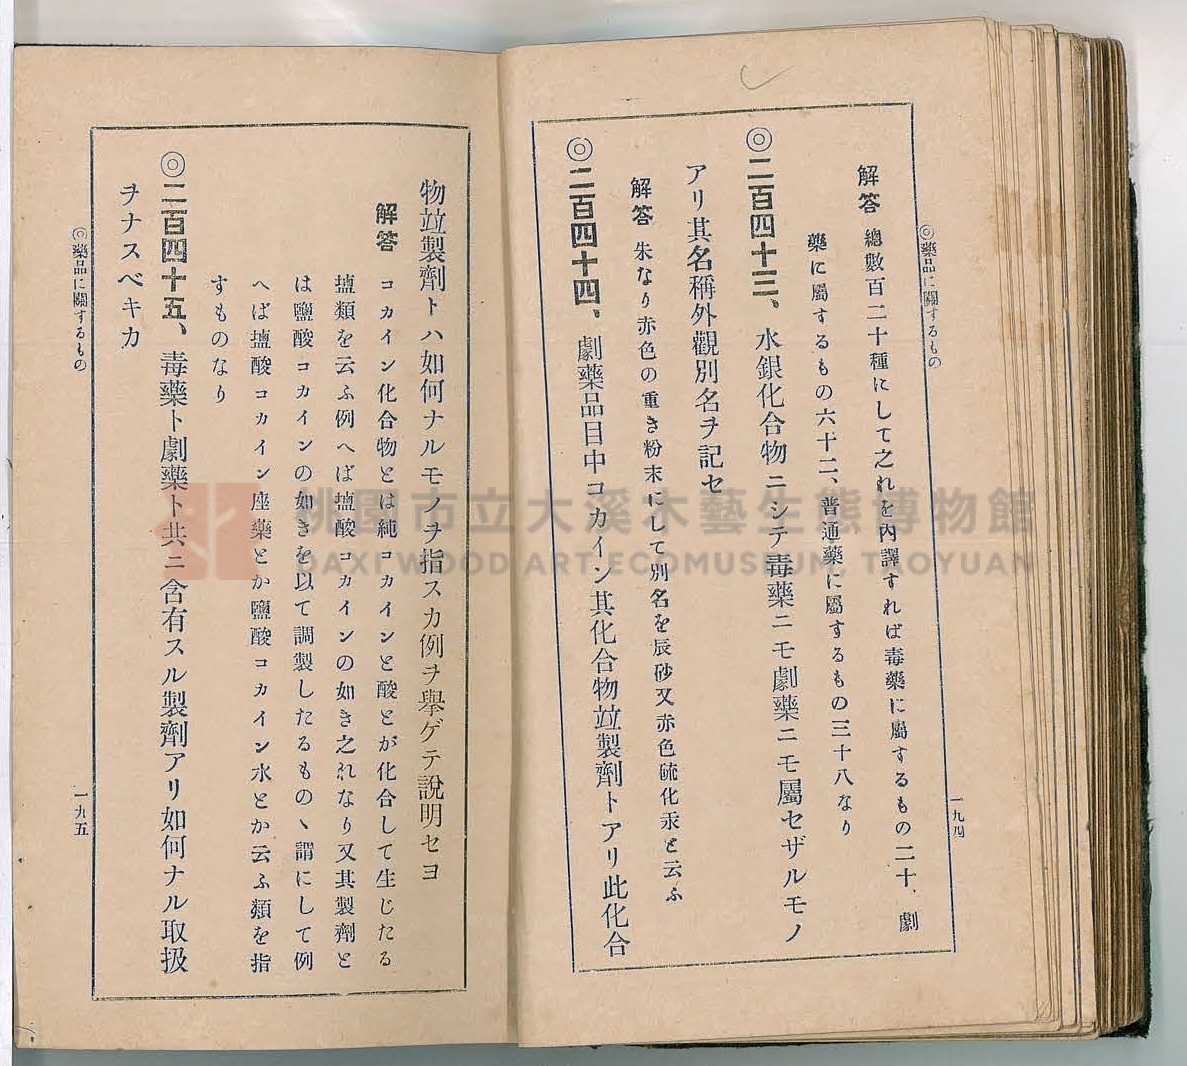 ◎藥品に關するもの
一九四
解答 總數百二十種にして之れを內譯すれば毒藥に屬するもの二十、劇
藥に屬するもの六十二、普通藥に屬するもの三十八なり
◎二百四十三、水銀化合物ニシテ毒藥ニモ劇藥ニモ屬セザルモノ
アリ其名稱外觀別名ヲ記セ
解答 朱なり赤色の重き粉末にして別名を辰砂又赤色硫化汞と云ふ
◎二百四十四、劇藥品目中コカイン其化合物竝製劑トアリ此化合
物竝製劑トハ如何ナルモノヲ指スカ例ヲ擧ゲテ說明セヨ
解答 コカイン化合物とは純コカインと酸とが化合して生じたる
塩類を云ふ例へば塩酸コカインの如き之れなり又其製劑と
は鹽酸コカインの如きを以て調製したるものヽ謂にして例
へば塩酸コカイン座藥とか鹽酸コカイン水とか云ふ類を指
すものなり
◎二百四十五、毒藥ト劇藥ト共ニ含有スル製劑アリ如何ナル取扱
ヲナスベキカ
◎藥品に關するもの
一九五
桃園市立大溪木藝生態博物館
DAXI WOOD ART ECOMUSEUM, TAOYUAN